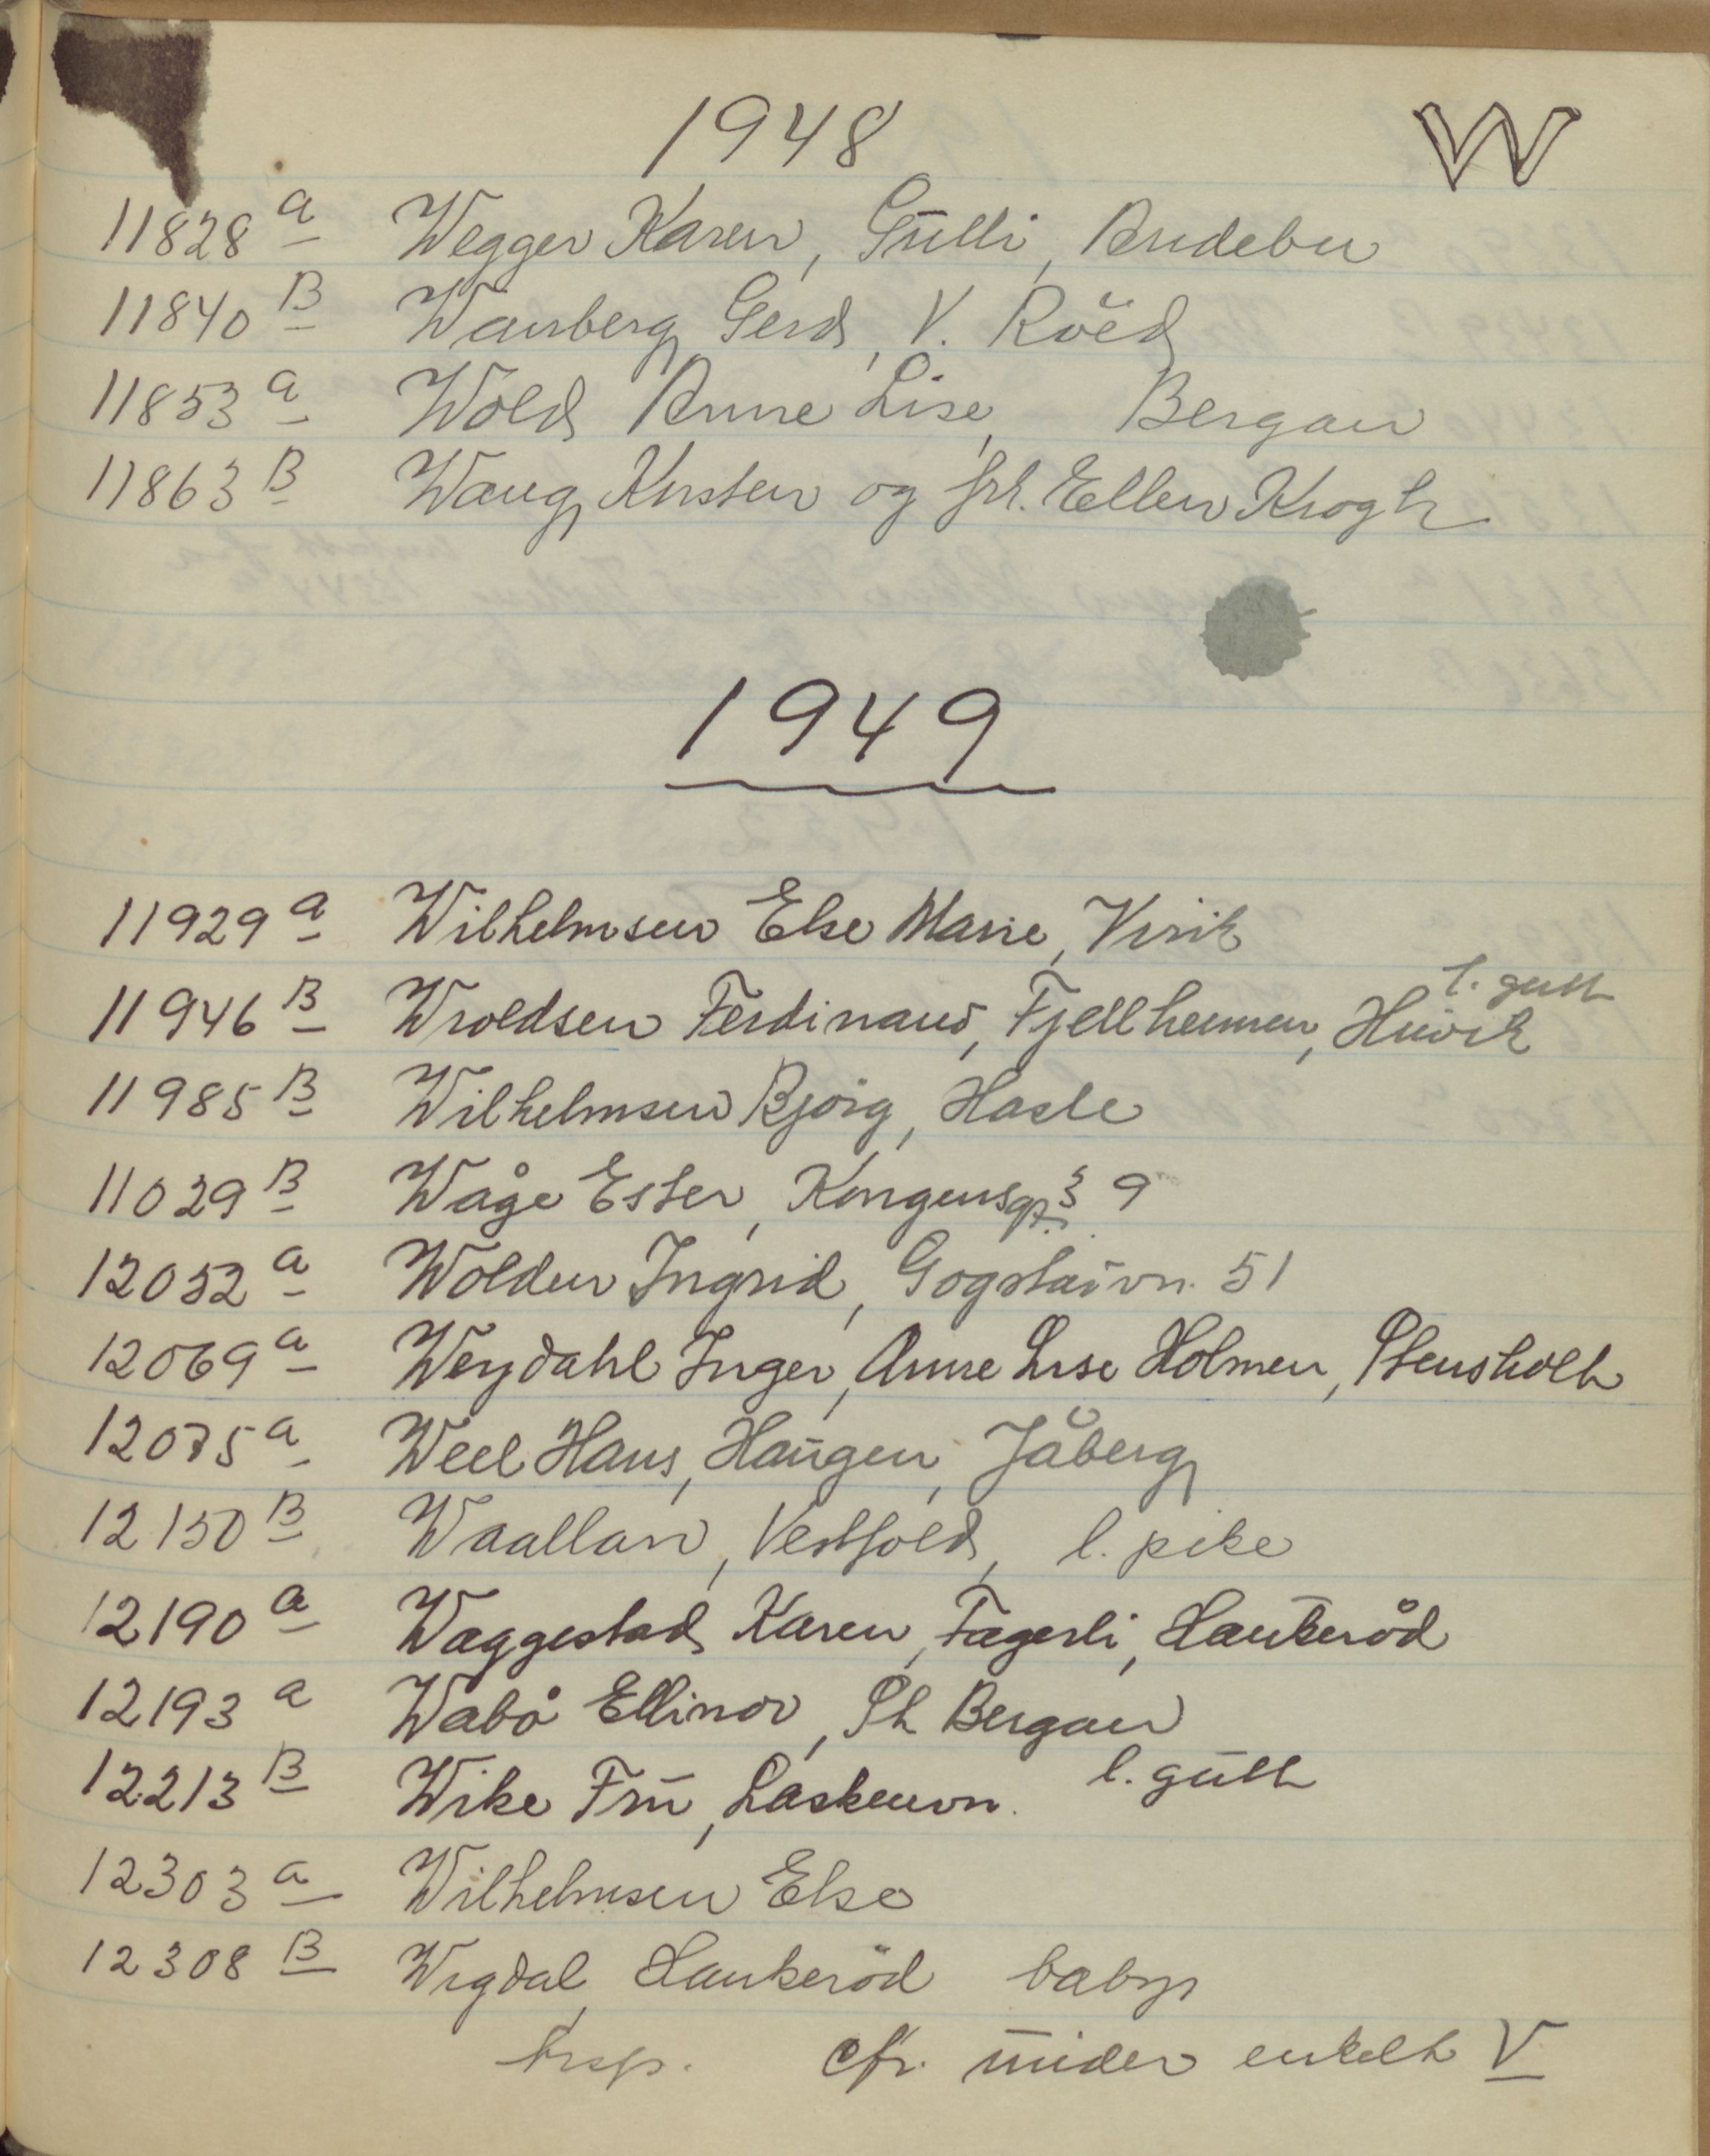 1948
W
11828 a Wegger Karen, Gulli, Andebu
11840 B Wansberg Gerd, V. Röed
11853 a Wold Anne Lise, Bergan
11863 B Wang Kirsten og frk. Ellen Krogh
1949
11929 a Wilhelmsen Else Marie, Virik
l. gutt
11946 B Wroldsen Ferdinand, Fjellheimen, Huvik
11985 B Wilhelmsen Bjørg, Hasle
11029 B Wåge Ester, Kongensgt. 9
12052 a Wolden Ingrid, Gogstadvn. 51
12069 a Weydahl Inger, Anne Lise Holmen, Stensholt
12075 a Weel Hans, Haugen, Jåberg
12150 B Waallan, Vestfold, l. pike
12190 a Waggestad Karen, Fagerli, Haukerød
12193 a Wabø Ellinor, St. Bergan
12213 B Wike Fru, Laskenvn. l. gutt
12303 a Wilhelmsen Else
12308 B Wigdal, Haukerød baby
cfr. under enkelt V